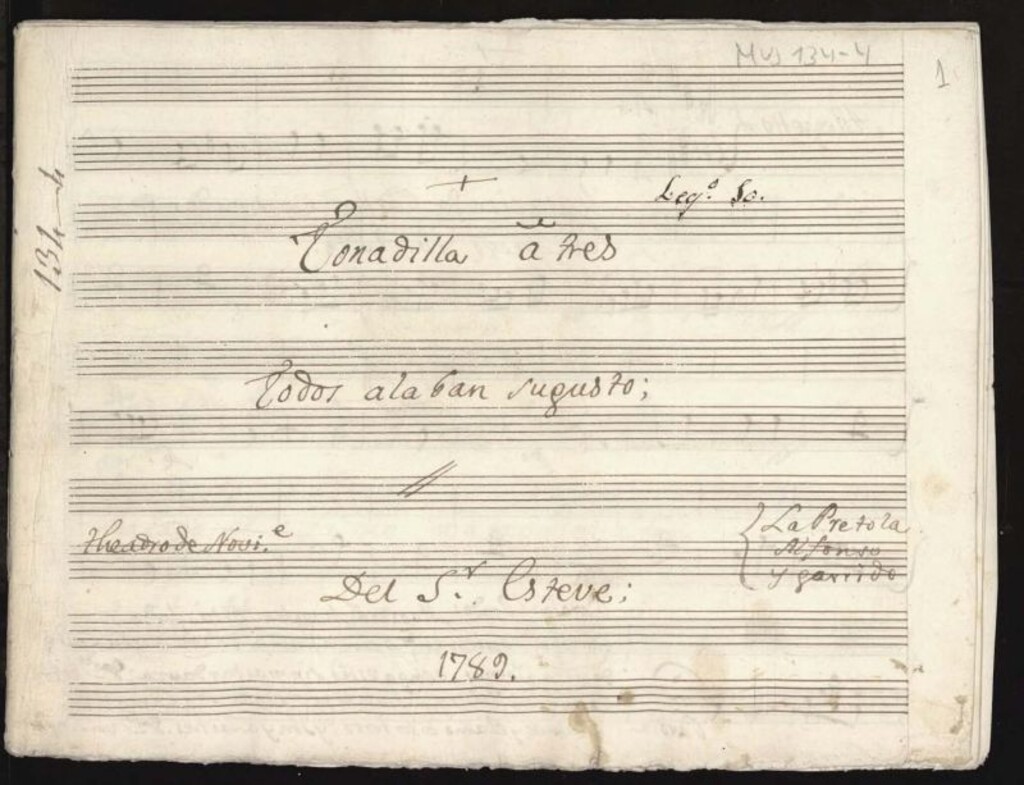 Mus 134-4
1
134-4
Leg.º 50.
Tonadilla â tres
Todos alaban sugusto;
theadro de Novi.e
La Pretola
Alfonso
y garrido
Del S.r Esteve;
1789.